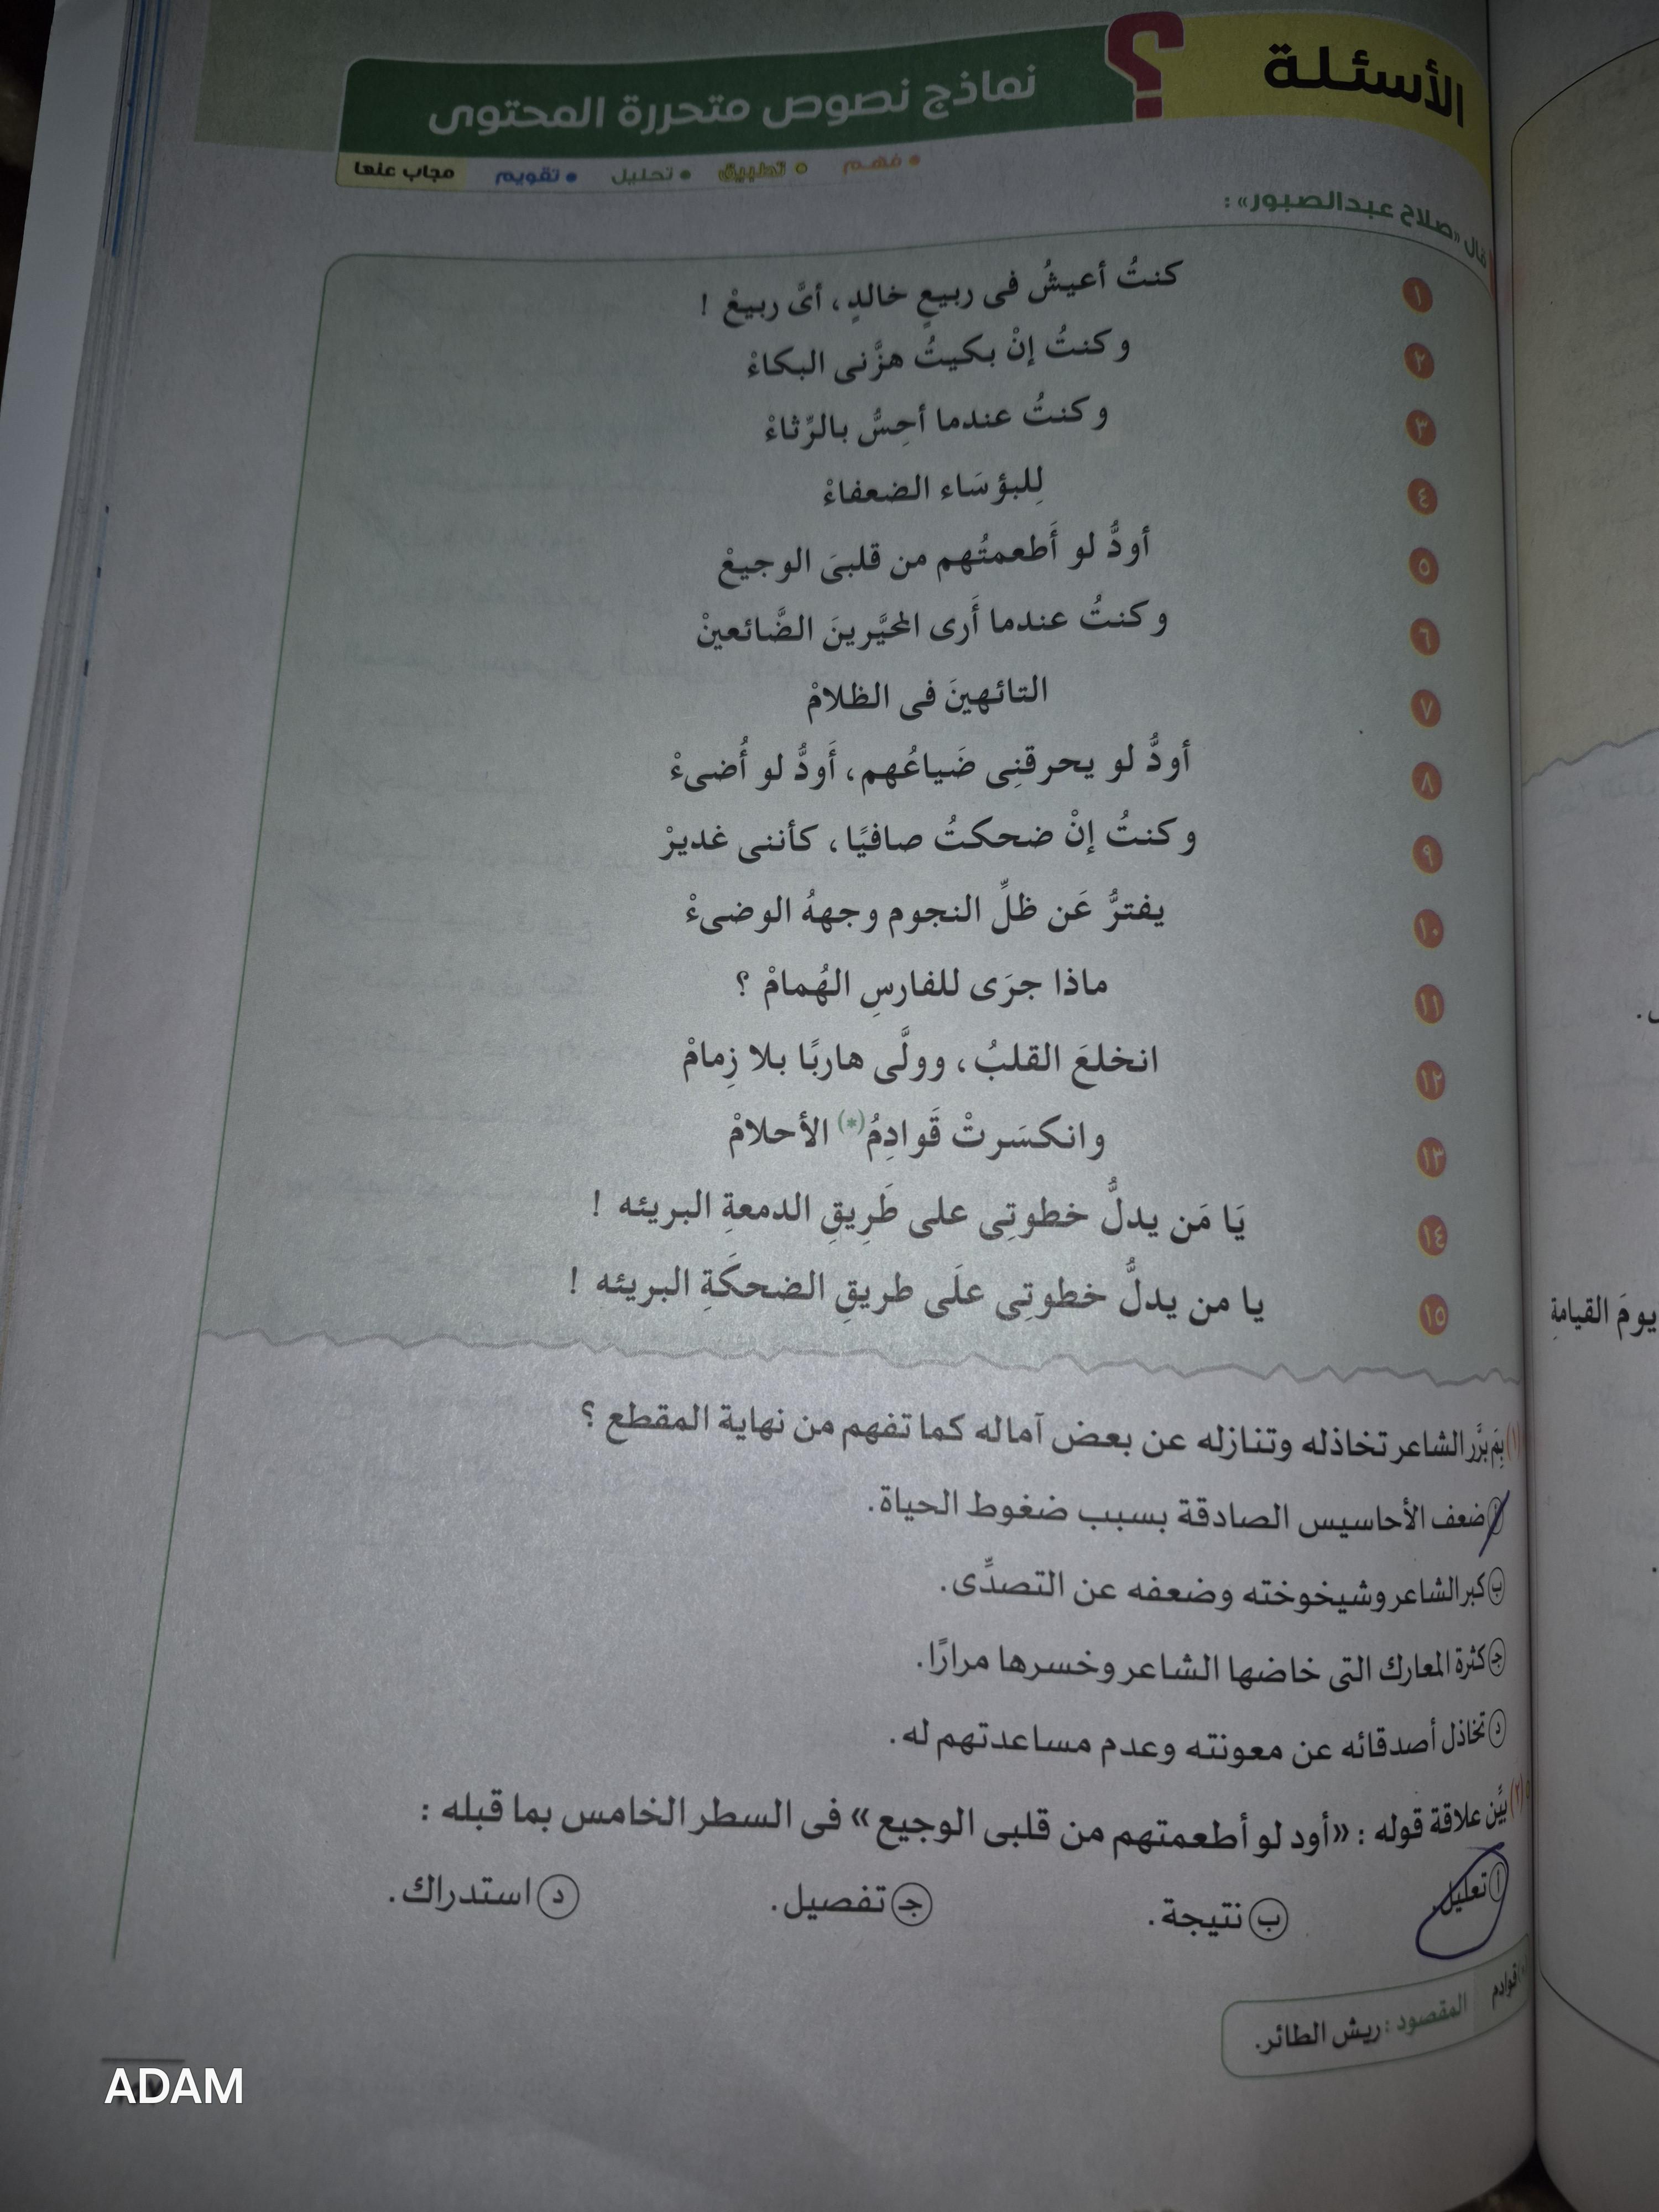 الأسئلة
؟
نماذج نصوص متحررة المحتوى
• فهم • تطبيق • تحليل • تقويم مجاب عنها
قال «صلاح عبدالصبور» :
١ كنتُ أعيشُ فى ربيعٍ خالدٍ، أىَّ ربيعْ !
٢ وكنتُ إنْ بكيتُ هزَّنى البكاءْ
٣ وكنتُ عندما أحِسُّ بالرِّثاءْ
٤ لِلبؤسَاء الضعفاءْ
٥ أودُّ لو أَطعمتُهم من قلبىَ الوجيعْ
٦ وكنتُ عندما أَرى المحيَّرينَ الضَّائعينْ
٧ التائهينَ فى الظلامْ
٨ أودُّ لو يحرقنِى ضَياعُهم، أَودُّ لو أُضىءْ
٩ وكنتُ إنْ ضحكتُ صافيًا، كأننى غديرْ
١٠ يفترُّ عَن ظلِّ النجوم وجههُ الوضىءْ
١١ ماذا جرَى للفارسِ الهُمامْ ؟
١٢ انخلعَ القلبُ، وولَّى هاربًا بلا زِمامْ
١٣ وانكسَرتْ قَوادِمُ(*) الأحلامْ
١٤ يَا مَن يدلُّ خطوتِى على طَرِيقِ الدمعةِ البريئه !
١٥ يا من يدلُّ خطوتِى علَى طريقِ الضحكَةِ البريئه !
(١) بِمَ برَّر الشاعر تخاذله وتنازله عن بعض آماله كما تفهم من نهاية المقطع ؟
أ ضعف الأحاسيس الصادقة بسبب ضغوط الحياة.
ب كبر الشاعر وشيخوخته وضعفه عن التصدِّى.
جـ كثرة المعارك التى خاضها الشاعر وخسرها مرارًا.
د تخاذل أصدقائه عن معونته وعدم مساعدتهم له.
(٢) بيِّن علاقة قوله : «أود لو أطعمتهم من قلبى الوجيع» فى السطر الخامس بما قبله :
أ تعليل. ب نتيجة. جـ تفصيل. د استدراك.
(*) قوادم المقصود : ريش الطائر.
يومَ القيامةِ
ADAM